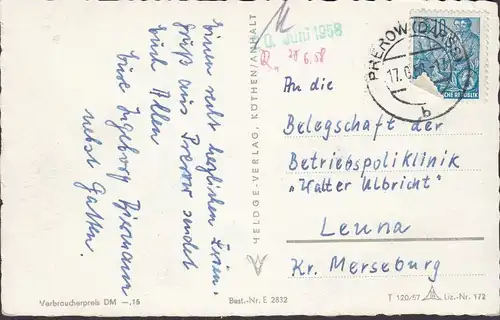 Einen recht herzlichen Ferien-
gruß aus Prerow sendet
Euch Allen
Eure Ingeborg
nebst Gatten.
HELDGE-VERLAG, KÖTHEN/ANHALT
0. Juni 1958
6.58
PREROW (DARSS)
17.6
b
10
CHE REPUBLIK
An die
Belegschaft der
Betriebspoliklinik
"Walter Ulbricht"
Leuna
Kr. Merseburg
Verbraucherpreis DM —.15
Best.-Nr. E 2832
T 120/57
Liz.-Nr. 172